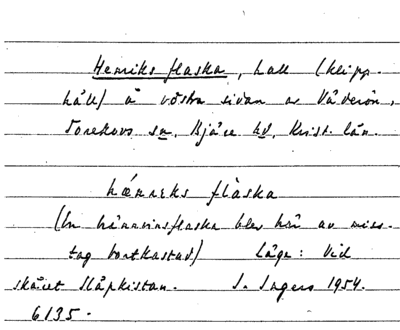 Henriks flaska, hall (klipp-
häll) å västra sidan av Väderön,
Torekovs sn, Bjäre hd, Krist. län.
hǽnreks flàska
(En brännvinsflaska blev här av miss-
tag bortkastad) Läge: Vid
skäret Släpkistan. S. Ingers 1954.
6135.